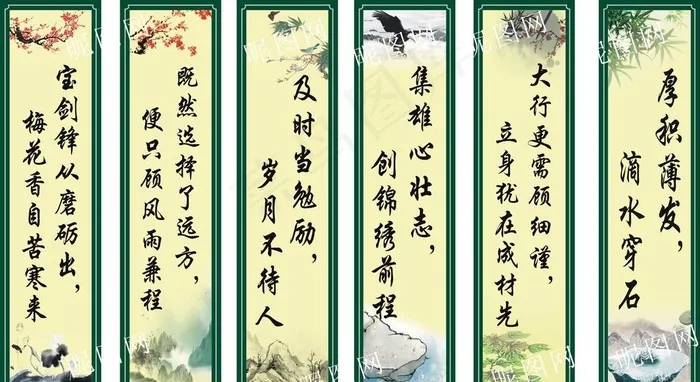 宝剑锋从磨砺出，
梅花香自苦寒来
既然选择了远方，
便只顾风雨兼程
及时当勉励，
岁月不待人
集雄心壮志，
创锦绣前程
大行更需顾细谨，
立身犹在成材先
厚积薄发，
滴水穿石
昵图网
昵图网
昵图网
昵图网
昵图网
昵图网